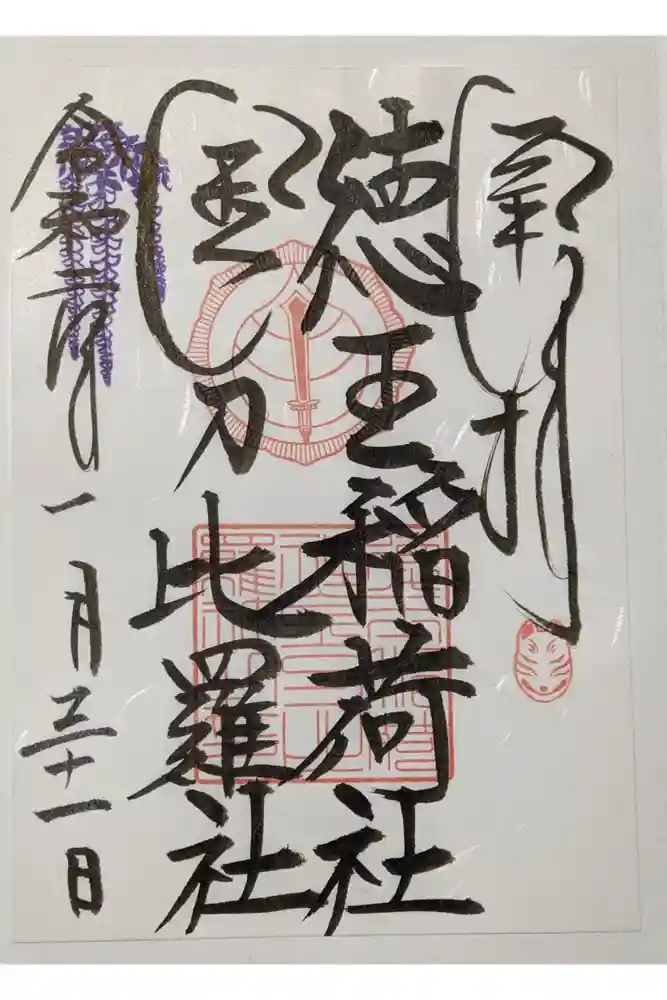 奉拝
徳王稲荷社
金刀比羅社
令和二年一月三十一日